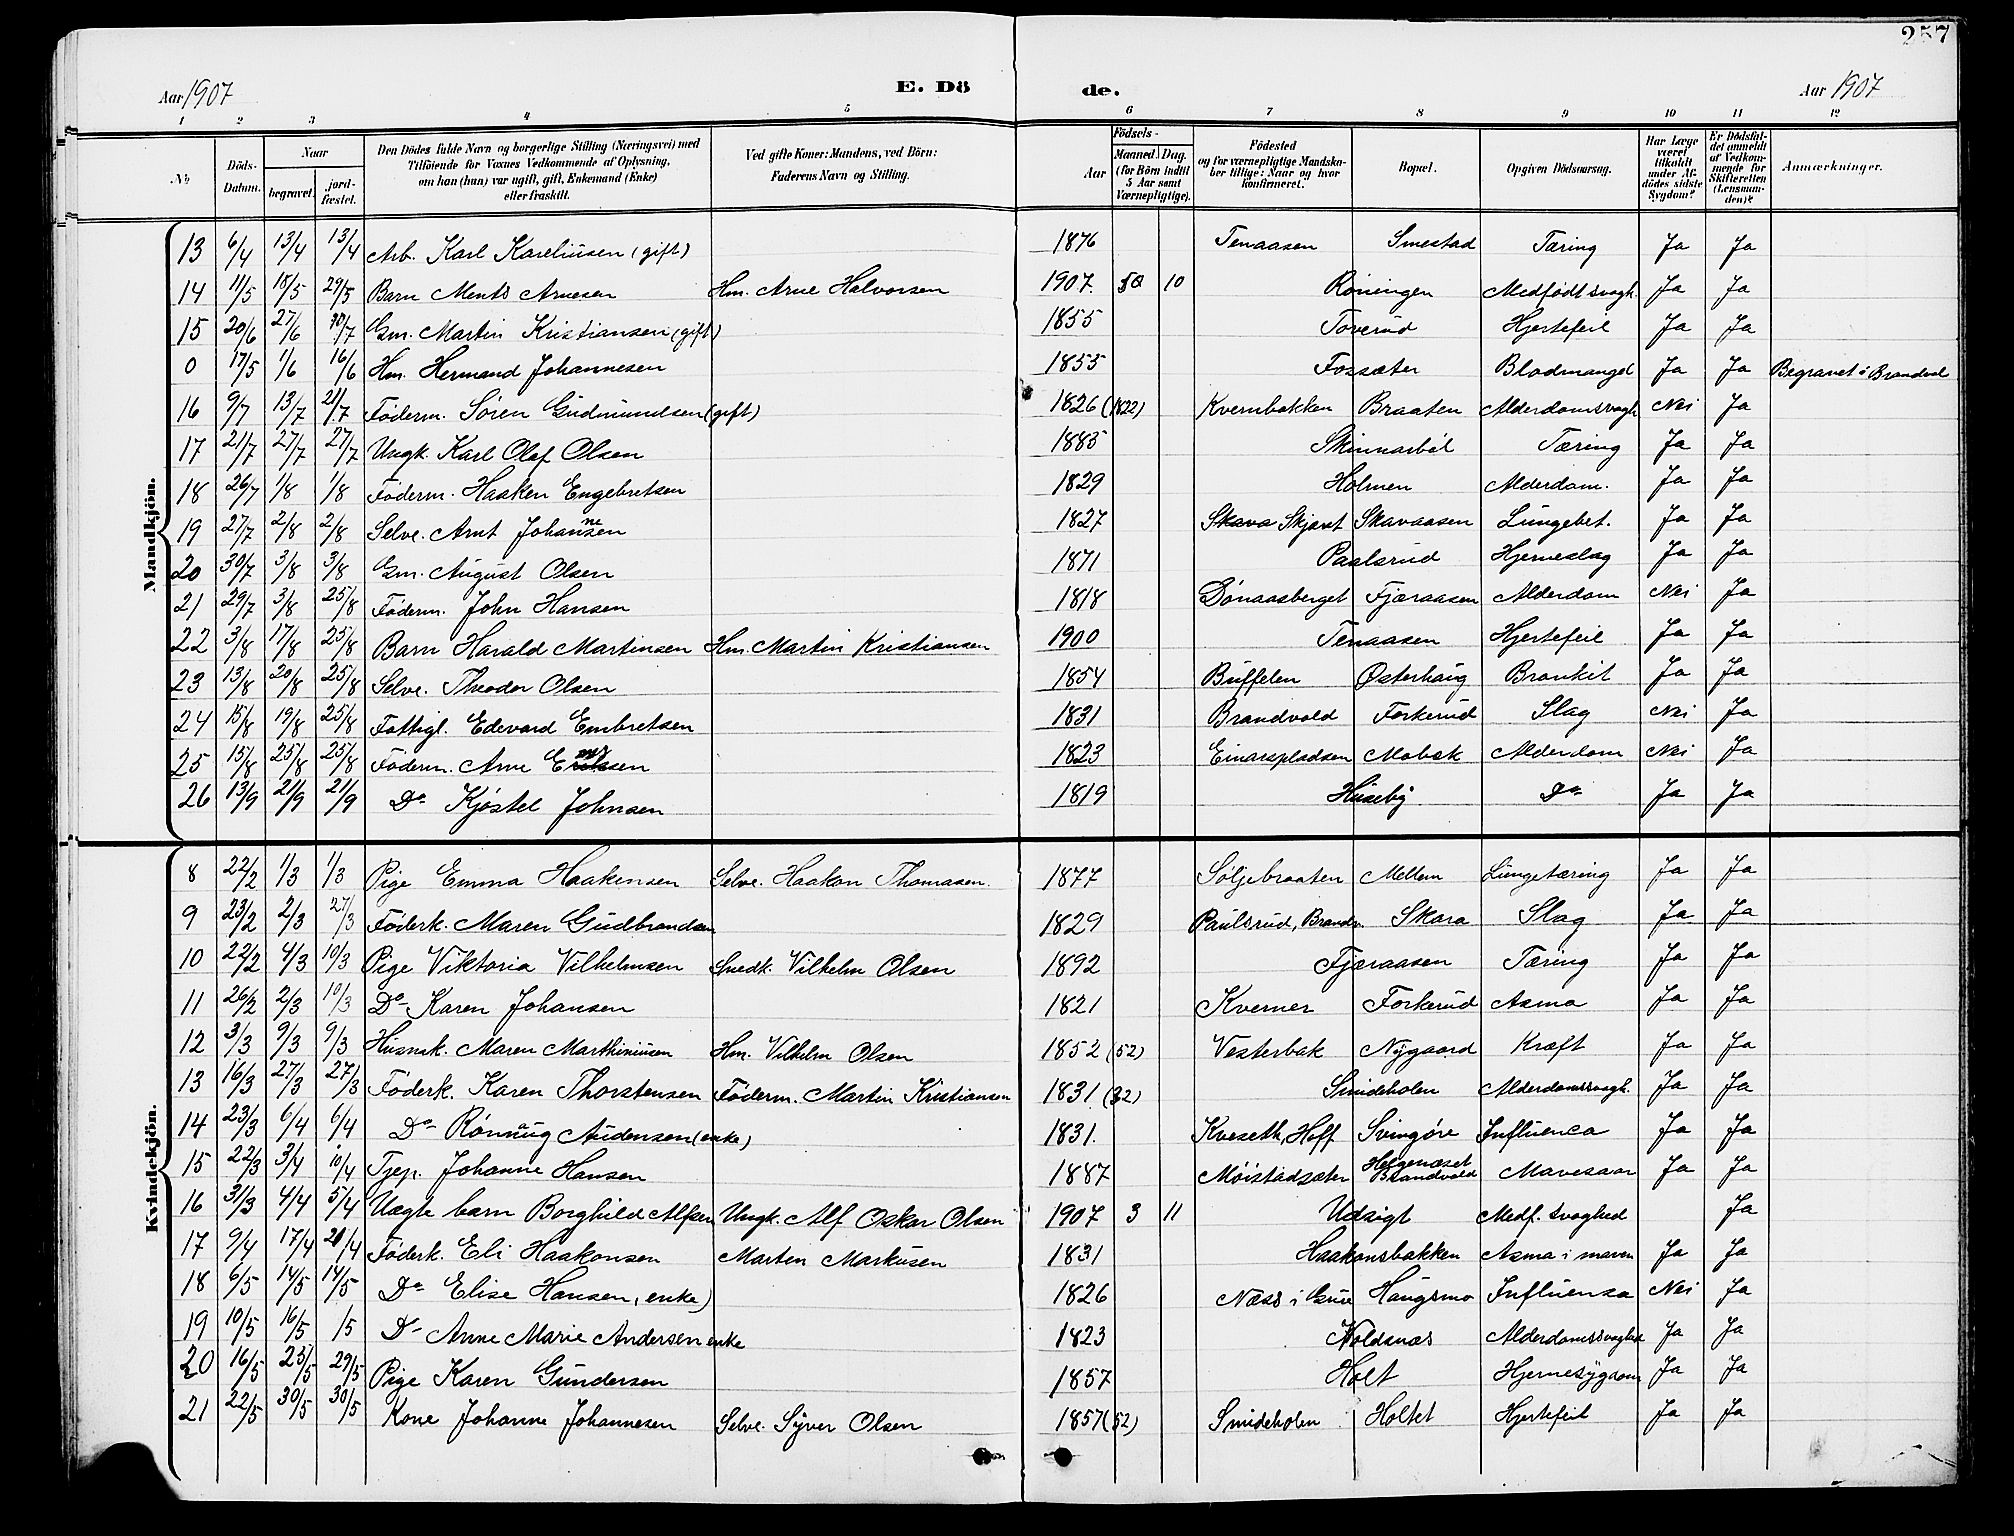 257
Aar 1907 E. Dö de. Aar 1907
1 2 3 4 5 6 7 8 9 10 11 12
No Döds-Datum. Naar begravet. jord-fæstet. Den Dödes fulde Navn og borgerlige Stilling (Næringsvei) med Tilföiende for Voxnes Vedkommende af Oplysning, om han (hun) var ugift, gift, Enkemand (Enke) eller fraskilt. Ved gifte Koner: Mandens, ved Börn: Faderens Navn og Stilling. Aar Födsels- Maaned. Dag. (for Börn indtil 5 Aar samt Værnepligtige). Födested og for værnepligtige Mandska-ber tillige: Naar og hvor konfirmeret. Bopæl. Opgiven Dödsaarsag. Har Læge været tilkaldt under Af-dödes sidste Sygdom? Er Dödsfal-det anmeldt af Vedkom-mende for Skifteretten (Lensman-den)? Anmærkninger.
Mandkjön.
13 6/4 13/4 13/4 Arb. Karl Kareliusen (gift) 1876 Tenaasen Smestad Tæring Ja Ja
14 11/5 18/5 29/5 Barn Ments Arnesen Hm. Arne Halvorsen 1907. 10 Røningen Medfødt svagh. Ja Ja
15 20/6 27/6 /7 Gm. Martin Kristiansen (gift) 1855 Toverud Hjertefeil Ja Ja
0 17/5 1/6 16/6 Hm. Hermand Johannesen 1855 Fossæter Blodmangel Ja Ja Begravet i Brandval
16 9/7 13/7 21/7 Föderm. Søren Gudmundsen (gift) 1826 (1822) Kvernbakken Braaten Alderdomssvagh Nei Ja
17 21/7 27/7 27/7 Ungk. Karl Olaf Olsen 1885 Skinnarböl Tæring Ja Ja
18 26/7 1/8 1/8 Föderm. Haaken Engebretsen 1829 Holmen Alderdom. Ja Ja
19 27/7 2/8 2/8 Selve. Arnt Johannesen 1827 Skava Skjæret Skavaasen Lungebet. Ja Ja
20 30/7 3/8 3/8 Gm. August Olsen 1871 Paalsrud Hjerneslag Ja Ja
21 29/7 3/8 25/8 Föderm. John Hansen 1818 Dönaasberget Fjæraasen Alderdom Nei Ja
22 3/8 17/8 25/8 Barn Harald Martinsen Hm. Martin Kristiansen 1900 Tenaasen Hjertefeil Ja Ja
23 13/8 20/8 25/8 Selve. Theodor Olsen 1854 Buffelen Østerhaug Bronkit Ja Ja
24 15/8 19/8 25/8 Fattigl. Edevard Embretsen 1831 Brandvold Forkerud Slag Nei Ja
25 15/8 25/8 25/8 Föderm. Arne 1823 Einarspladsen Mobæk Alderdom Nei Ja
26 13/9 21/9 21/9 Do Kjøstel Johnsen 1819 Huseby Do Ja Ja
Kvindekjön.
8 22/2 1/3 1/3 Pige Emma Haakensen Selve. Haakon Thomasen. 1877 Soljebraaten Mellem Lungetæring Ja Ja
9 23/2 2/3 27/3 Föderk. Maren Gudbrandsen 1829 Paulsrud, Brandv. Skara Slag Ja Ja
10 22/2 4/3 10/3 Pige Viktoria Vilhelmsen Snedk. Vilhelm Olsen 1892 Fjæraasen Tæring Ja Ja
11 26/2 2/3 10/3 Do Karen Johansen 1821 Kverner Forkerud Asma Ja Ja
12 3/3 9/3 9/3 Husmk. Maren Marthiniusen Hm. Vilhelm Olsen 1852 (52) Vesterbak Nygaard Kræft Ja Ja
13 16/3 27/3 27/3 Föderk. Karen Thorstensen Föderm. Martin Kristiansen 1831 (32) Smideholen Alderdomssvagh. Ja Ja
14 23/3 6/4 6/4 Do Rønnaug Audensen (enke) 1831. Kveseth, Hoff Svingöre Influenca Ja Ja
15 22/3 3/4 10/4 Tjep. Johanne Hansen 1887 Møistadsæter Helgenæset Brandvold Mavesaar Ja Ja
16 31/3 4/4 5/4 Uægte barn Borghild Alfsen Ungk. Alf Oskar Olsen 1907 3 11 Udsigt Medf. svaghed Ja
17 9/4 17/4 20/4 Föderk. Eli Haakonsen Marten Markusen 1831 Haakonsbakken Asma i maven Ja Ja
18 6/5 14/5 14/5 Do Elise Hansen, enke) 1826 Næss i Grue Haugsmo Influensa Nei Ja
19 10/5 16/5 /5 Do Anne Marie Andersen enke 1823 Noldsnæs Alderdomssvaghed Ja Ja
20 16/5 25/5 29/5 Pige Karen Gundersen 1857 Holt Hjernesygdom Ja Ja
21 22/5 30/5 30/5 Kone Johanne Johannesen Selve. Syver Olsen 1857 (52) Smideholen Holtet Hjertefeil Ja Ja